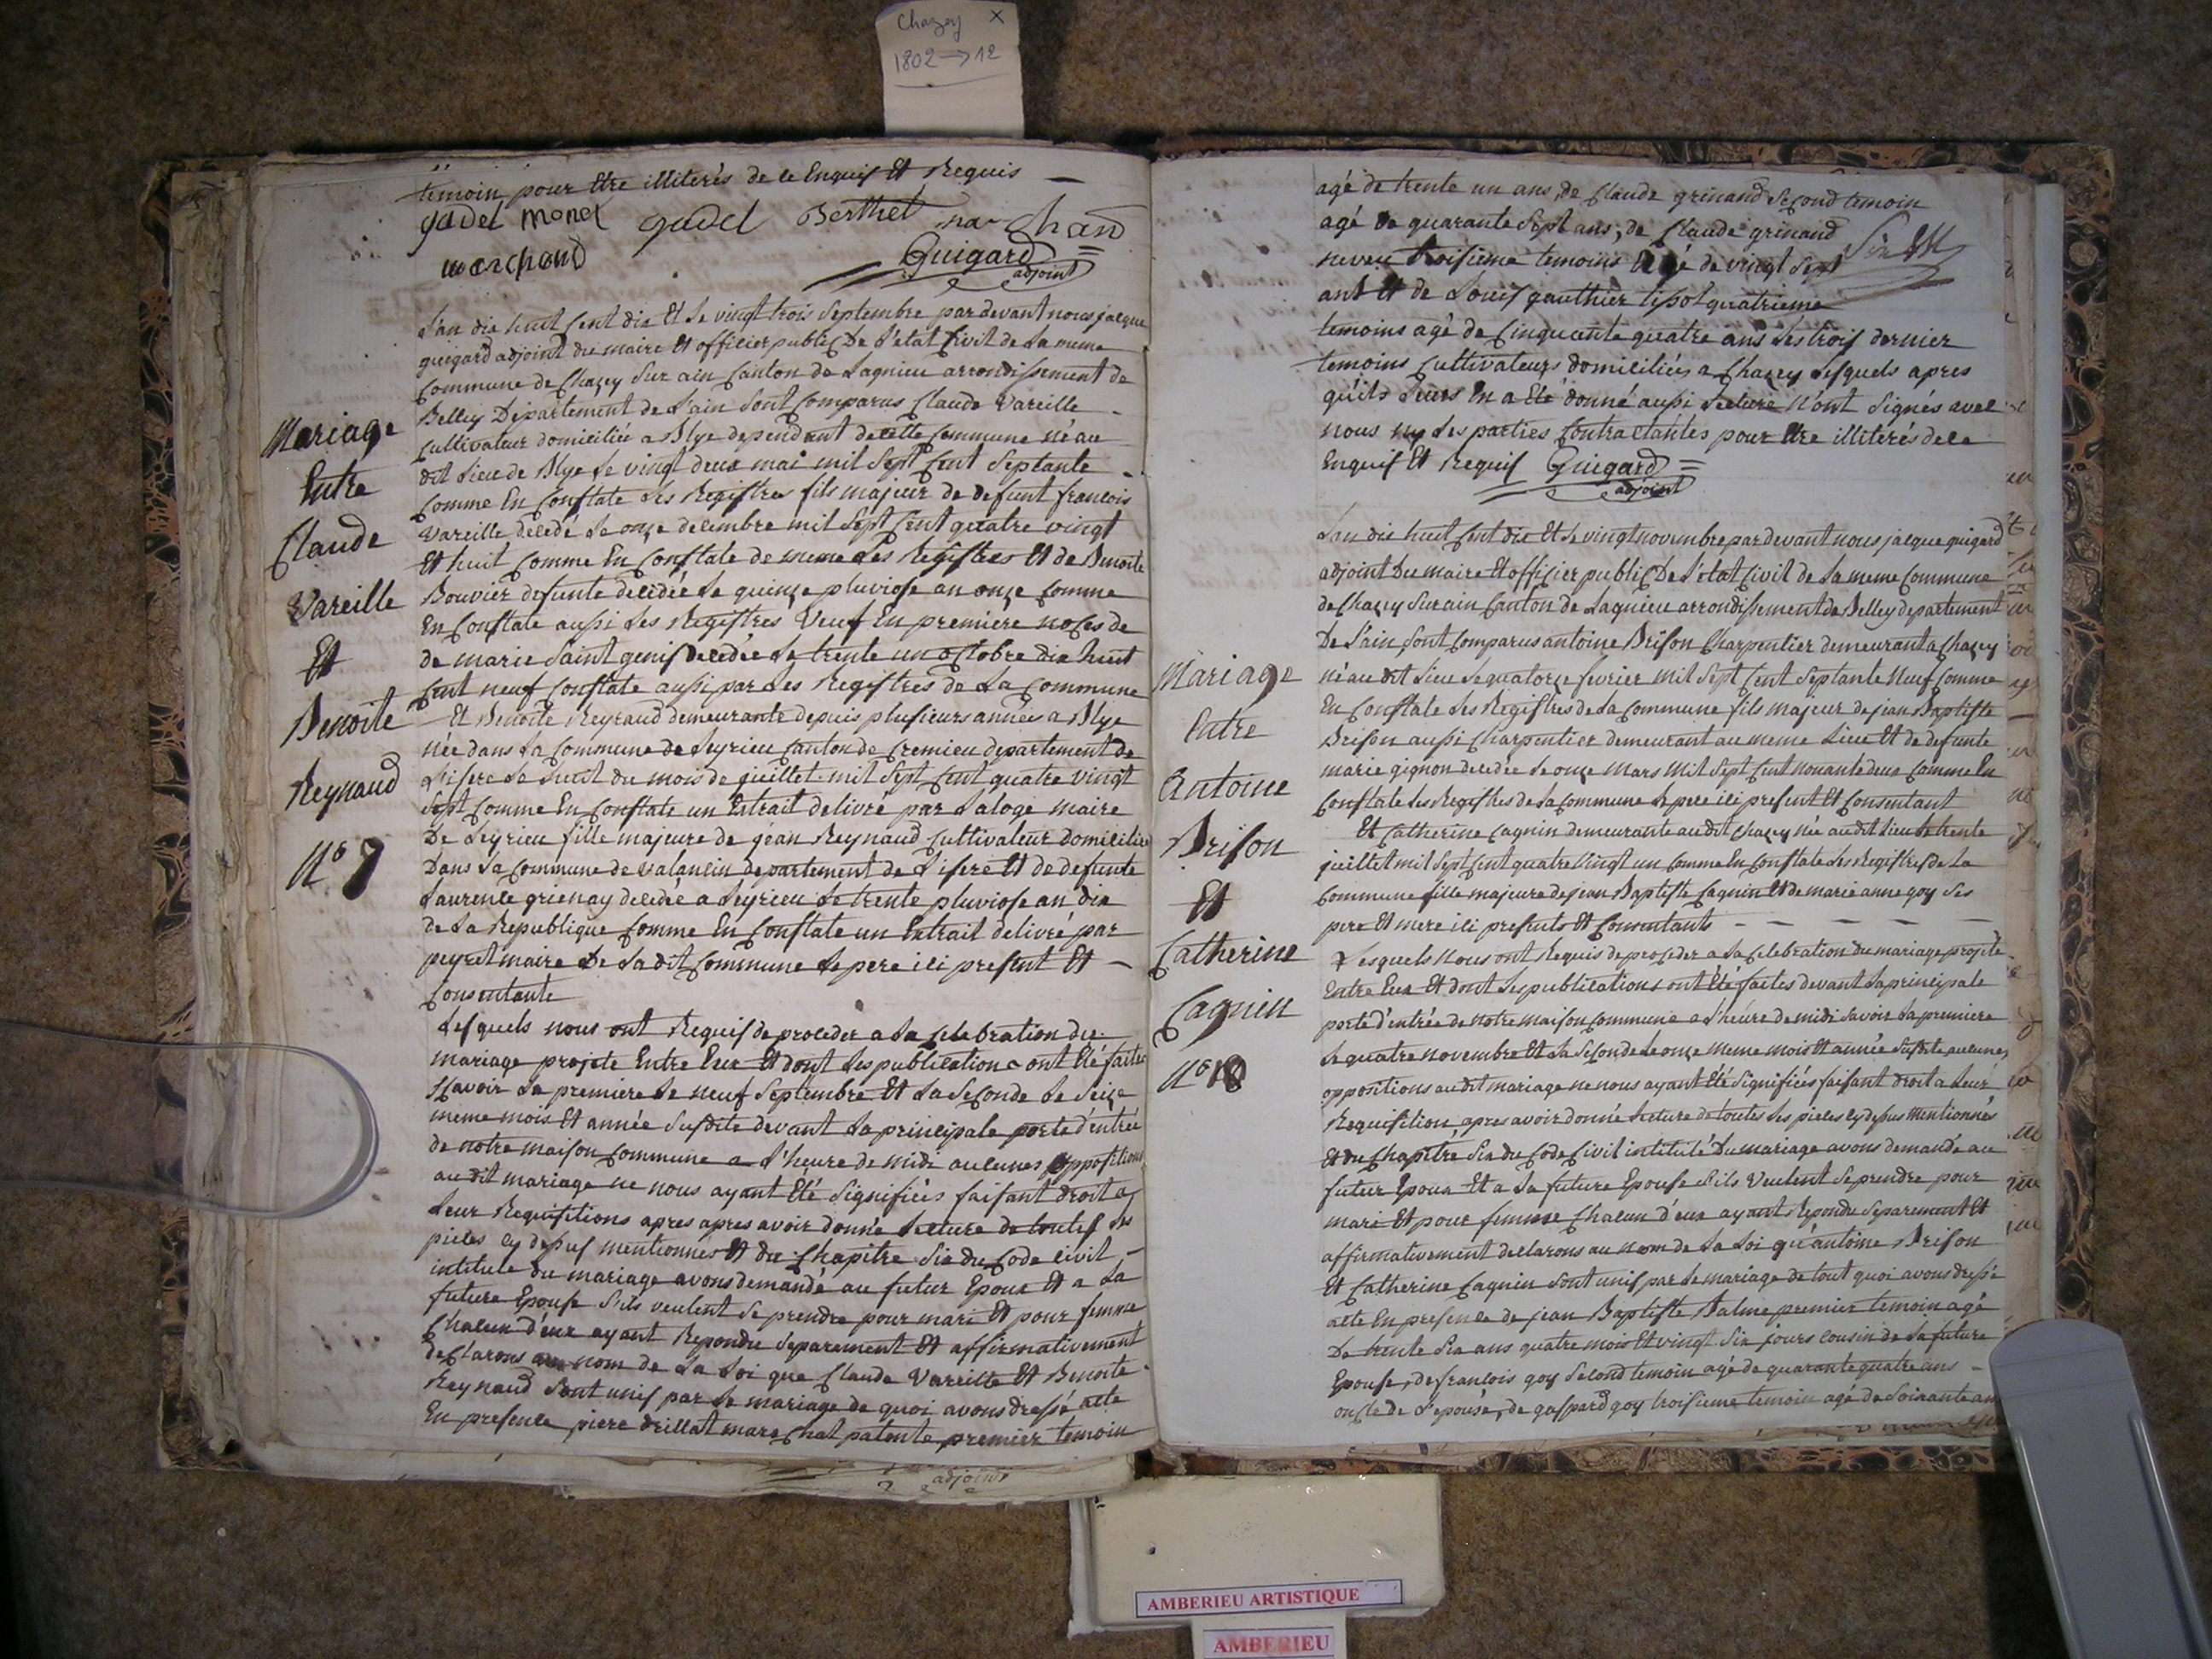 Chazey X
1802 → 12
temoin pour Etre illiterés de ce Enquis Et Requis —
gadel monel gadel Berthet marchand
marchand Guigard
adjoint
L'an dix huit Cent dix Et Le vingt trois Septembre par devant nous jacque
guigard adjoint du maire Et officier public De L'état Civil de La meme
Commune de Chazey Sur ain Canton de Lagnieu arrondissement de
Belley Département de L'ain Sont Comparus Claude Vareille
Cultivateur domiciliée a Blye dependant de cette Commune né au
dit Lieu de Blye Le vingt deux mai mil Sept Cent Septante
Comme En Constate Les Registres fils majeur de defunt francois
Vareille decedé Le onze decembre mil Sept Cent quatre vingt
Et huit Comme En Constate de meme Les Registres Et de Benoite
Bouvier defunte decedée Le quinze pluviose an onze Comme
En Constate aussi Les Registres Veuf En premiere noces de
de marie Saint genis decedée Le trente un octobre dix huit
Cent neuf Constate aussi par Les Registres de La Commune
Et Benoite Reynaud demeurante depuis plusieurs années a Blye
née dans La Commune de Leyrieu Canton de Cremieu departement de
L'isere Le huit du mois de juillet mil Sept Cent quatre vingt
Sept Comme En Constate un Extrait delivré par Laloge maire
De Leyrieu fille majeure de jean Reynaud Cultivateur domiciliée
Dans La Commune de Valancin departement de L'isere Et de defunte
Laurence grienay decedée a Leyrieu Le trente pluviose an dix
de La Republique Comme En Constate un Extrait delivré par
peyret maire De La dit Commune Le pere ici present Et —
Consentante
Lesquels nous ont Requis de proceder a La Celebration du
mariage projete Entre Eux Et dont Les publications ont Eté faites
Scavoir La premiere Le neuf Septembre Et La Seconde Le Seize
meme mois Et année Susdite devant La principale porte d'entrée
de notre maison Commune a L'heure de midi aucunes oppositions
au dit mariage ne nous ayant Eté Signifiées faisant droit a
Leur Requisitions apres apres avoir donnée Lecture de toutes Les
pieces Cy dessus mentionnes Et du Chapitre Six du Code Civil —
intitule du mariage avons demandé au futur Epoux Et a La
future Epouse S'ils veulent Se prendre pour mari Et pour femme
Chacun d'eux ayant Repondu Separement Et affirmativement
declarons au nom de La Loi que Claude Vareille Et Benoite
Reynaud Sont unis par Le mariage de quoi avons dressé acte
En presence piere drillat marechat patente premier temoin
Mariage
Entre
Claude
Vareille
Et
Benoite
Reynaud
N° 9
adjoint
agé de trente un ans, de Claude grinand Second temoin
agé de quarante Sept ans, de Claude grinand
neveu troisieme temoins agé de vingt Sept
ans Et de Louis gauthier tissot quatrieme
temoins agé de Cinquante quatre ans Les trois dernier
temoins Cultivateurs domiciliées a Chazey Lesquels apres
qu'ils Leurs En a Eté donné aussi Lecture N'ont Signés avec
nous ny Les parties Contractantes pour Etre illiterés de ce
Enquis Et Requis Guigard
adjoint
L'an dix huit Cent dix Et Le vingt novembre par devant nous jacque guigard
adjoint Du maire Et officier public De L'état Civil de La meme Commune
de Chazey Sur ain Canton de Lagnieu arrondissement de Belley departement
De L'ain Sont Comparus antoine Brison Charpentier demeurant a Chazey
né au dit Lieu Le quatorze fevrier mil Sept Cent Septante Neuf Comme
En Constate Les Registres de La Commune fils majeur de jean Baptiste
Brison aussi Charpentier demeurant au meme Lieu Et de defunte
marie gignon decedée Le onze Mars Mil Sept Cent nonante deux Comme En
Constate Les Registres de La Commune Le pere ici present Et Consentant
Et Catherine Cagnin demeurante au dit Chazey née au dit Lieu Le trente
juillet mil Sept Cent quatre Vingt un Comme En Constate Les Registres de La
Commune fille majeure de jean Baptiste Cagnin Et de marie anne goy Ses
pere Et mere ici presents Et Consentants — — — — —
Lesquels Nous ont Requis de proceder a La Celebration du mariage projeté
Entre Eux Et dont Les publications ont Eté faites devant La principale
porte d'entrée de notre maison Commune a L'heure de midi Savoir La premiere
Le quatre novembre Et La Seconde Le onze Meme mois Et année Susdite aucunes
oppositions au dit mariage ne nous ayant Eté Signifiées faisant droit a Leur
Requisition apres avoir donné Lecture de toutes Les pieces Cy dessus Mentionnés
Et du Chapitre Six du Code Civil intitulé Du mariage avons demandé au
futur Epoux Et a La future Epouse S'ils Veulent Se prendre pour
mari Et pour femme Chacun d'eux ayant Repondu Separement Et
affirmativement declarons au nom de La Loi qu'antoine Brison
Et Catherine Cagnin Sont unis par Le mariage de tout quoi avons dressé
acte En presence de jean Baptiste Balme premier temoin agé
De trente Six ans quatre mois Et vingt Six jours cousin de La future
Epouse, de francois goy Second temoin agé de quarante quatre ans —
oncle de L'epouse, de gaspard goy troisieme temoin agé de Soixante ans
Mariage
Entre
Antoine
Brison
Et
Catherine
Cagnin
N° 10
AMBERIEU ARTISTIQUE
AMBERIEU